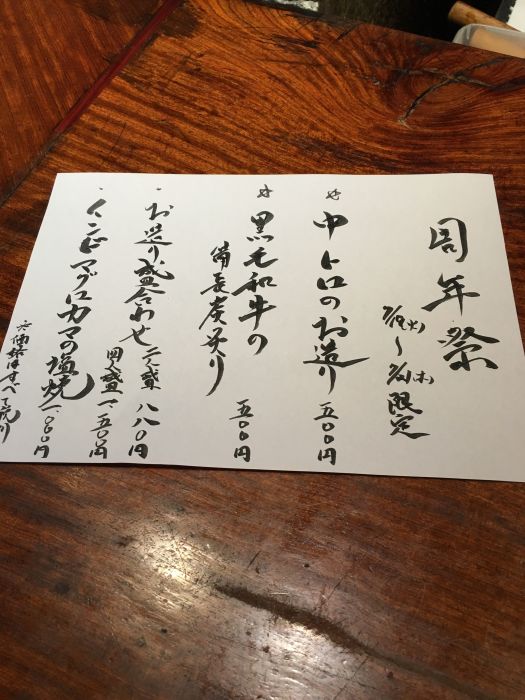 周年祭
7/19(火)〜7/21(木)限定
中トロのお造り 五〇〇円
黒毛和牛の
備長炭炙り 五〇〇円
・お造り盛合わせ 二点盛 八八〇円
四点盛 一、五〇〇円
・インドマグロカマの塩焼 一、〇〇〇円
価格はすべて税別